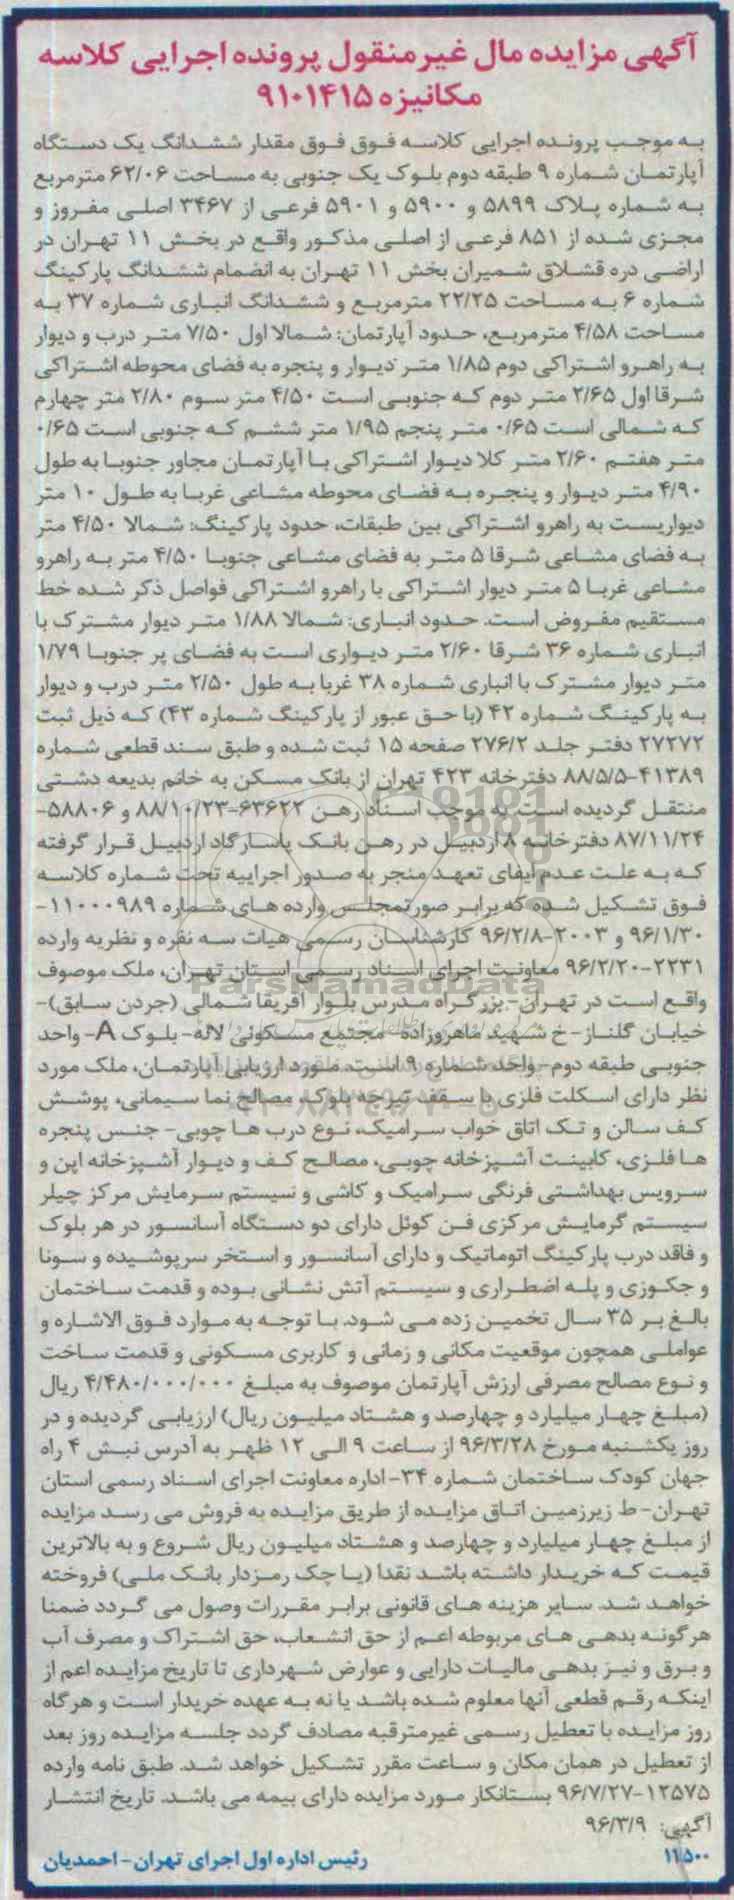 آگهی مزایده مال غیرمنقول پرونده اجرایی کلاسه
مکانیزه ۹۱۰۱۴۱۵
به موجب پرونده اجرایی کلاسه فوق فوق مقدار ششدانگ یک دستگاه
آپارتمان شماره ۹ طبقه دوم بلوک یک جنوبی به مساحت ۶۲/۰۶ مترمربع
به شماره پلاک ۵۸۹۹ و ۵۹۰۰ و ۵۹۰۱ فرعی از ۳۴۶۷ اصلی مفروز و
مجزی شده از ۸۵۱ فرعی از اصلی مذکور واقع در بخش ۱۱ تهران در
اراضی دره قشلاق شمیران بخش ۱۱ تهران به انضمام ششدانگ پارکینگ
شماره ۶ به مساحت ۲۲/۲۵ مترمربع و ششدانگ انباری شماره ۳۷ به
مساحت ۴/۵۸ مترمربع، حدود آپارتمان: شمالا اول ۷/۵۰ متر درب و دیوار
به راهرو اشتراکی دوم ۱/۸۵ متر دیوار و پنجره به فضای محوطه اشتراکی
شرقا اول ۲/۶۵ متر دوم که جنوبی است ۴/۵۰ متر سوم ۲/۸۰ متر چهارم
که شمالی است ۰/۶۵ متر پنجم ۱/۹۵ متر ششم که جنوبی است ۰/۶۵
متر هفتم ۲/۶۰ متر کلا دیوار اشتراکی با آپارتمان مجاور جنوبا به طول
۴/۹۰ متر دیوار و پنجره به فضای محوطه مشاعی غربا به طول ۱۰ متر
دیواریست به راهرو اشتراکی بین طبقات، حدود پارکینگ: شمالا ۴/۵۰ متر
به فضای مشاعی شرقا ۵ متر به فضای مشاعی جنوبا ۴/۵۰ متر به راهرو
مشاعی غربا ۵ متر دیوار اشتراکی با راهرو اشتراکی فواصل ذکر شده خط
مستقیم مفروض است. حدود انباری: شمالا ۱/۸۸ متر دیوار مشترک با
انباری شماره ۳۶ شرقا ۲/۶۰ متر دیواری است به فضای پر جنوبا ۱/۷۹
متر دیوار مشترک با انباری شماره ۳۸ غربا به طول ۲/۵۰ متر درب و دیوار
به پارکینگ شماره ۴۲ (با حق عبور از پارکینگ شماره ۴۳) که ذیل ثبت
۲۷۲۷۲ دفتر جلد ۲۷۶/۲ صفحه ۱۵ ثبت شده و طبق سند قطعی شماره
۴۱۳۸۹-۸۸/۵/۵ دفترخانه ۴۲۳ تهران از بانک مسکن به خانم بدیعه دشتی
منتقل گردیده است. به موجب اسناد رهن ۶۳۶۲۲-۸۸/۱۰/۲۳ و ۵۸۸۰۶-
۸۷/۱۱/۲۴ دفترخانه ۸ اردبیل در رهن بانک پاسارگاد اردبیل قرار گرفته
که به علت عدم ایفای تعهد منجر به صدور اجراییه تحت شماره کلاسه
فوق تشکیل شده که برابر صورتمجلس وارده های شماره ۱۱۰۰۰۹۸۹-
۹۶/۱/۳۰ و ۲۰۰۳-۹۶/۲/۸ کارشناسان رسمی هیات سه نفره و نظریه وارده
۲۲۳۱-۹۶/۲/۲۰ معاونیت اجرای اسناد رسمی استان تهران، ملک موصوف
واقع است در تهران- بزرگراه مدرس بلوار آفریقا شمالی (جردن سابق)-
خیابان گلناز- خ شهید ماهروزاده- مجتمع مسکونی لاله- بلوک A- واحد
جنوبی طبقه دوم- واحد شماره ۹ است. مورد ارزیابی آپارتمان، ملک مورد
نظر دارای اسکلت فلزی با سقف تیرچه بلوک، مصالح نما سیمانی، پوشش
کف سالن و تک اتاق خواب سرامیک، نوع درب ها چوبی- جنس پنجره
ها فلزی، کابینت آشپزخانه چوبی، مصالح کف و دیوار آشپزخانه اپن و
سرویس بهداشتی فرنگی سرامیک و کاشی و سیستم سرمایش مرکز چیلر
سیستم گرمایش مرکزی فن کوئل دارای دو دستگاه آسانسور در هر بلوک
و فاقد درب پارکینگ اتوماتیک و دارای آسانسور و استخر سرپوشیده و سونا
و جکوزی و پله اضطراری و سیستم آتش نشانی بوده و قدمت ساختمان
بالغ بر ۳۵ سال تخمین زده می شود. با توجه به موارد فوق الاشاره و
عواملی همچون موقعیت مکانی و زمانی و کاربری مسکونی و قدمت ساخت
و نوع مصالح مصرفی ارزش آپارتمان موصوف به مبلغ ۴/۴۸۰/۰۰۰/۰۰۰ ریال
(مبلغ چهار میلیارد و چهارصد و هشتاد میلیون ریال) ارزیابی گردیده و در
روز یکشنبه مورخ ۹۶/۳/۲۸ از ساعت ۹ الی ۱۲ ظهر به آدرس نبش ۴ راه
جهان کودک ساختمان شماره ۳۴- اداره معاونت اجرای اسناد رسمی استان
تهران- ط زیرزمین اتاق مزایده از طریق مزایده به فروش می رسد مزایده
از مبلغ چهار میلیارد و چهارصد و هشتاد میلیون ریال شروع و به بالاترین
قیمت که خریدار داشته باشد نقدا (یا چک رمزدار بانک ملی) فروخته
خواهد شد. سایر هزینه های قانونی برابر مقررات وصول می گردد ضمنا
هرگونه بدهی های مربوطه اعم از حق انشعاب، حق اشتراک و مصرف آب
و برق و نیز بدهی مالیات دارایی و عوارض شهرداری تا تاریخ مزایده اعم از
اینکه رقم قطعی آنها معلوم شده باشد یا نه به عهده خریدار است و هرگاه
روز مزایده با تعطیل رسمی غیرمترقبه مصادف گردد جلسه مزایده روز بعد
از تعطیل در همان مکان و ساعت مقرر تشکیل خواهد شد. طبق نامه وارده
۱۲۵۷۵-۹۶/۷/۲۷ بستانکار مورد مزایده دارای بیمه می باشد. تاریخ انتشار
آگهی: ۹۶/۳/۹
۱۱۵۰۰ رئیس اداره اول اجرای تهران- احمدیان
ParsNamadData